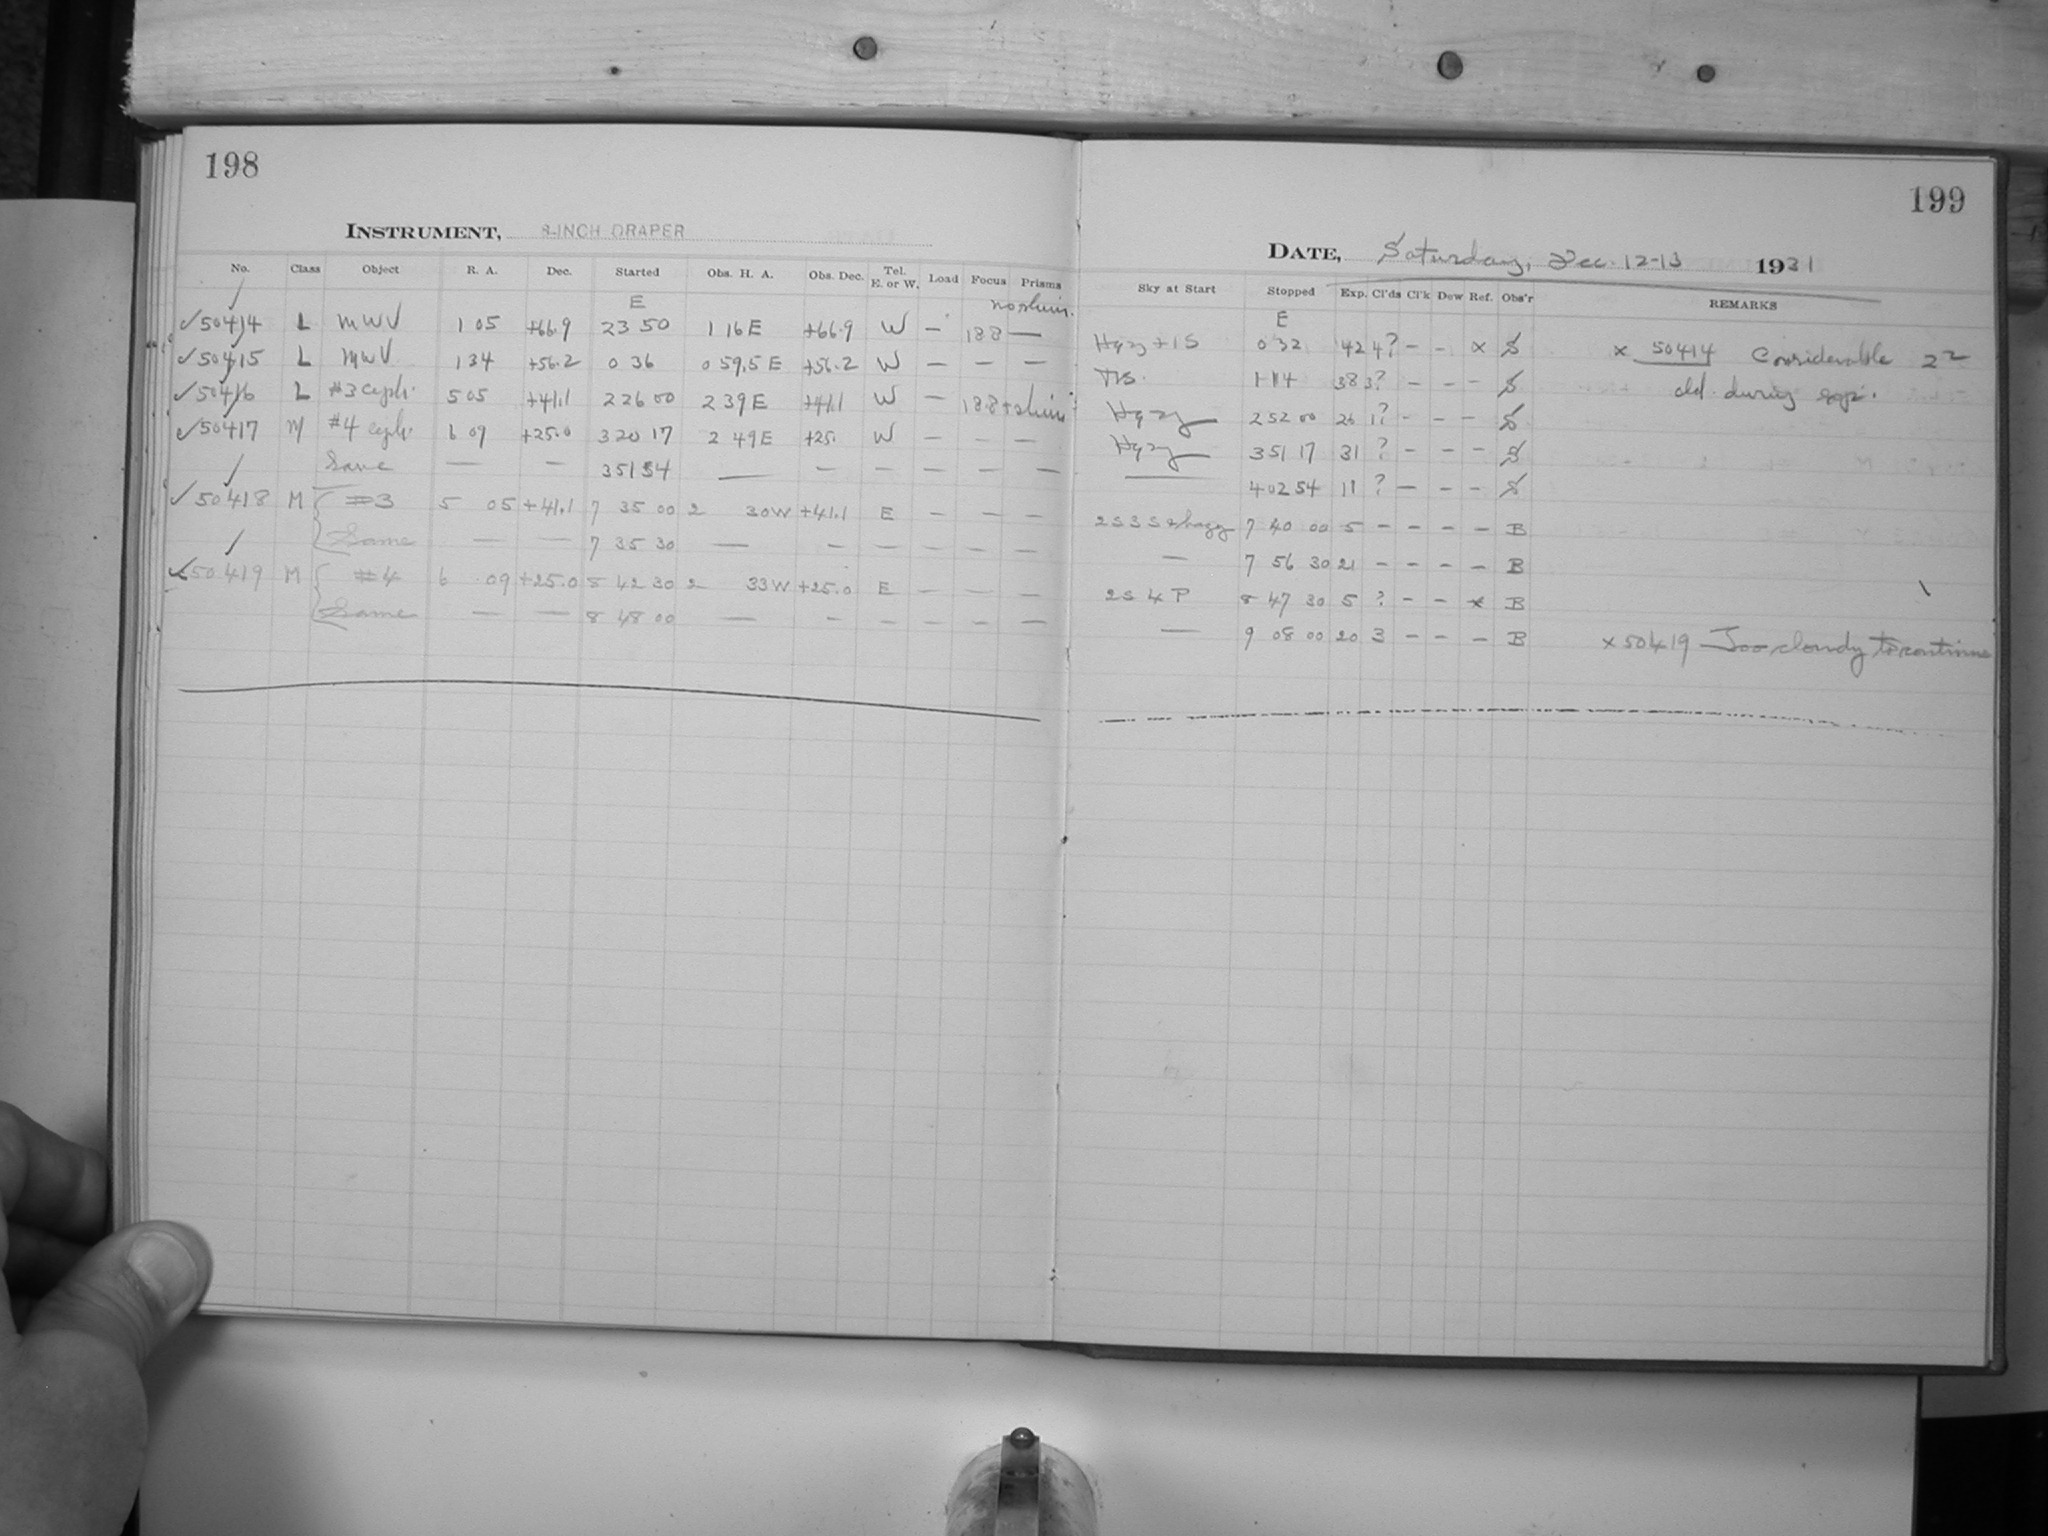 198
INSTRUMENT, 8-INCH DRAPER
No. Class Object R. A. Dec. Started Obs. H. A. Obs. Dec. Tel. E. or W. Load Focus Prisms
E
50414 L MWV 1 05 +66.9 23 50 1 16 E +66.9 W — 18.8 —
50415 L MWV 1 34 +56.2 0 36 0 59.5 E +56.2 W — — —
50416 L #3 5 05 +41.1 2 26 00 2 39 E +41.1 W — 18.8
50417 M #4 6 09 +25.0 3 20 17 2 49 E +25. W — — —
Same — — 3 51 54 — — — — — —
50418 M #3 5 05 +41.1 7 35 00 2 30 W +41.1 E — — —
Same — — 7 35 30 — — — — — —
50419 M #4 6 09 +25.0 8 42 30 2 33 W +25.0 E — — —
Same — — 8 48 00 — — — — — —
199
DATE, Saturday, Dec. 12-13 1931
Sky at Start Stopped Exp. Cl'ds Cl'k Dew Ref. Obs'r REMARKS
E
0 32 42 4? — — x S x 50414 Considerable
1 14 38 3? — — — S cld. during exp.
Hazy 2 52 00 26 1? — — — S
Hazy 3 51 17 31 ? — — — S
— 4 02 54 11 ? — — — S
2 S 3 S + hazy 7 40 00 5 — — — — B
— 7 56 30 21 — — — — B
2 S 4 P 8 47 30 5 ? — — x B
— 9 08 00 20 3 — — — B x 50419 Too cloudy to continue